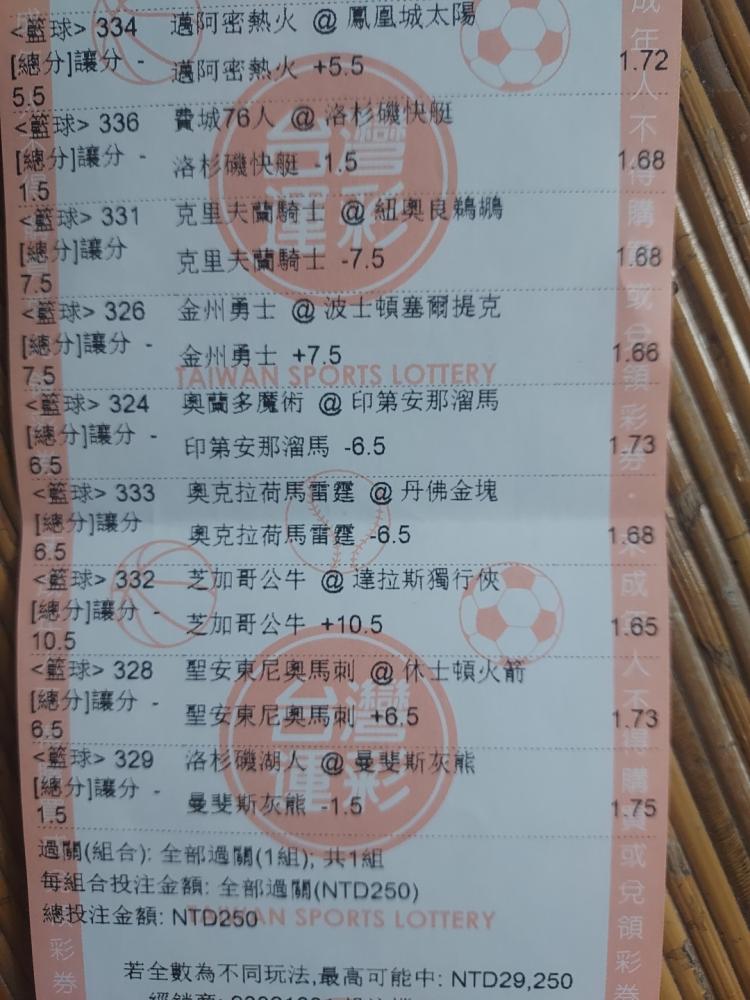 <籃球> 334 邁阿密熱火 @ 鳳凰城太陽
[總分]讓分 - 邁阿密熱火 +5.5 1.72
5.5
<籃球> 336 費城76人 @ 洛杉磯快艇
[總分]讓分 - 洛杉磯快艇 -1.5 1.68
1.5
<籃球> 331 克里夫蘭騎士 @ 紐奧良鵜鶘
[總分]讓分 克里夫蘭騎士 -7.5 1.68
7.5
<籃球> 326 金州勇士 @ 波士頓塞爾提克
[總分]讓分 - 金州勇士 +7.5 1.66
7.5
TAIWAN SPORTS LOTTERY
<籃球> 324 奧蘭多魔術 @ 印第安那溜馬
[總分]讓分 - 印第安那溜馬 -6.5 1.73
6.5
<籃球> 333 奧克拉荷馬雷霆 @ 丹佛金塊
[總分]讓分 奧克拉荷馬雷霆 -6.5 1.68
6.5
<籃球> 332 芝加哥公牛 @ 達拉斯獨行俠
[總分]讓分 - 芝加哥公牛 +10.5 1.65
10.5
<籃球> 328 聖安東尼奧馬刺 @ 休士頓火箭
[總分]讓分 - 聖安東尼奧馬刺 +6.5 1.73
6.5
<籃球> 329 洛杉磯湖人 @ 曼斐斯灰熊
[總分]讓分 - 曼斐斯灰熊 -1.5 1.75
1.5
台灣運彩
台灣運彩
過關(組合): 全部過關(1組); 共1組
每組合投注金額: 全部過關(NTD250)
總投注金額: NTD250
TAIWAN SPORTS LOTTERY
若全數為不同玩法,最高可能中: NTD29,250
成年人不得購買或兌領彩券．未成年人不得購買或兌領彩券